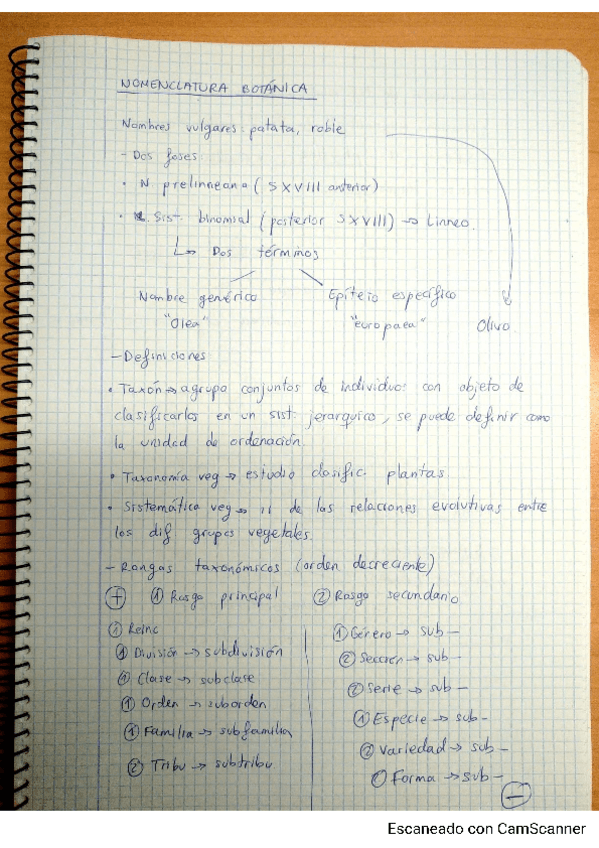 NOMENCLATURA BOTÁNICA
Nombres vulgares: patata, roble
- Dos fases:
• N. prelinneana (SXVIII anterior)
• Sist. binomial (posterior SXVIII) → Linneo.
↳ Dos términos
Nombre genérico Epíteto específico
"Olea" "europaea" Olivo
- Definiciones
• Taxón → agrupa conjuntos de individuos con objeto de
clasificarlos en un sist. jerarquico, se puede definir como
la unidad de ordenación.
• Taxonomía veg → estudio clasific. plantas.
• Sistemática veg → 11 de las relaciones evolutivas entre
los dif grupos vegetales.
- Rangos taxonómicos (orden decreciente)
+ ① Rasgo principal ② Rasgo secundario
① Reino
① División → subdivisión
① Clase → subclase
① Orden → suborden
① Familia → subfamilia
② Tribu → subtribu
① Género → sub -
② Sección → sub -
② Serie → sub -
① Especie → sub -
② Variedad → sub -
Forma → sub -
-
Escaneado con CamScanner